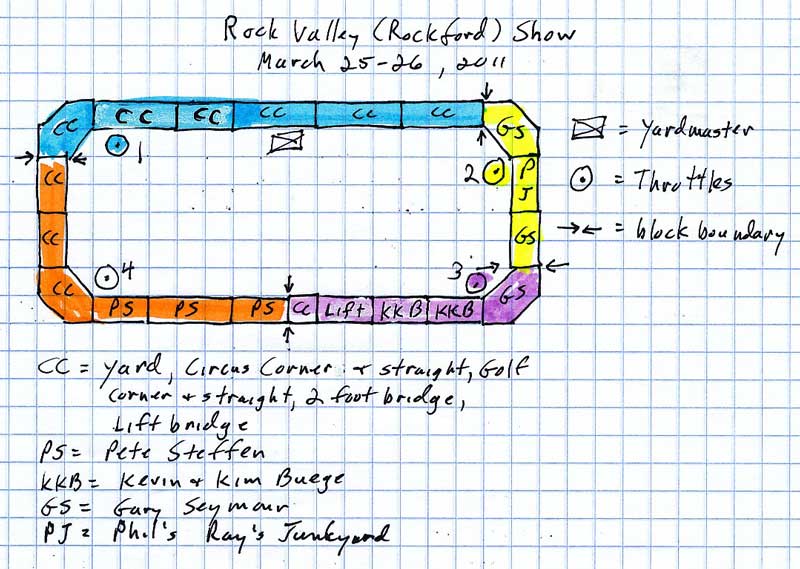 Rock Valley (Rockford) Show
March 25-26, 2011
CC CC CC CC CC CC GS
1
2
= Yardmaster
CC P J
= Throttles
CC GS
= block boundary
4
3
CC PS PS PS CC Lift KKB KKB GS
CC = Yard, Circus Corner + straight, Golf
corner + straight, 2 foot bridge,
Lift bridge
PS = Pete Steffen
KKB = Kevin + Kim Buege
GS = Gary Seymour
PJ = Phil's Ray's Junkyard